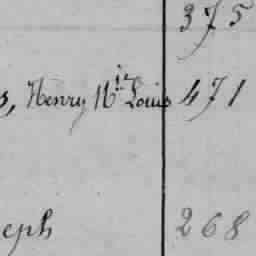 375
s, Henry N. Louis 471
eph 268